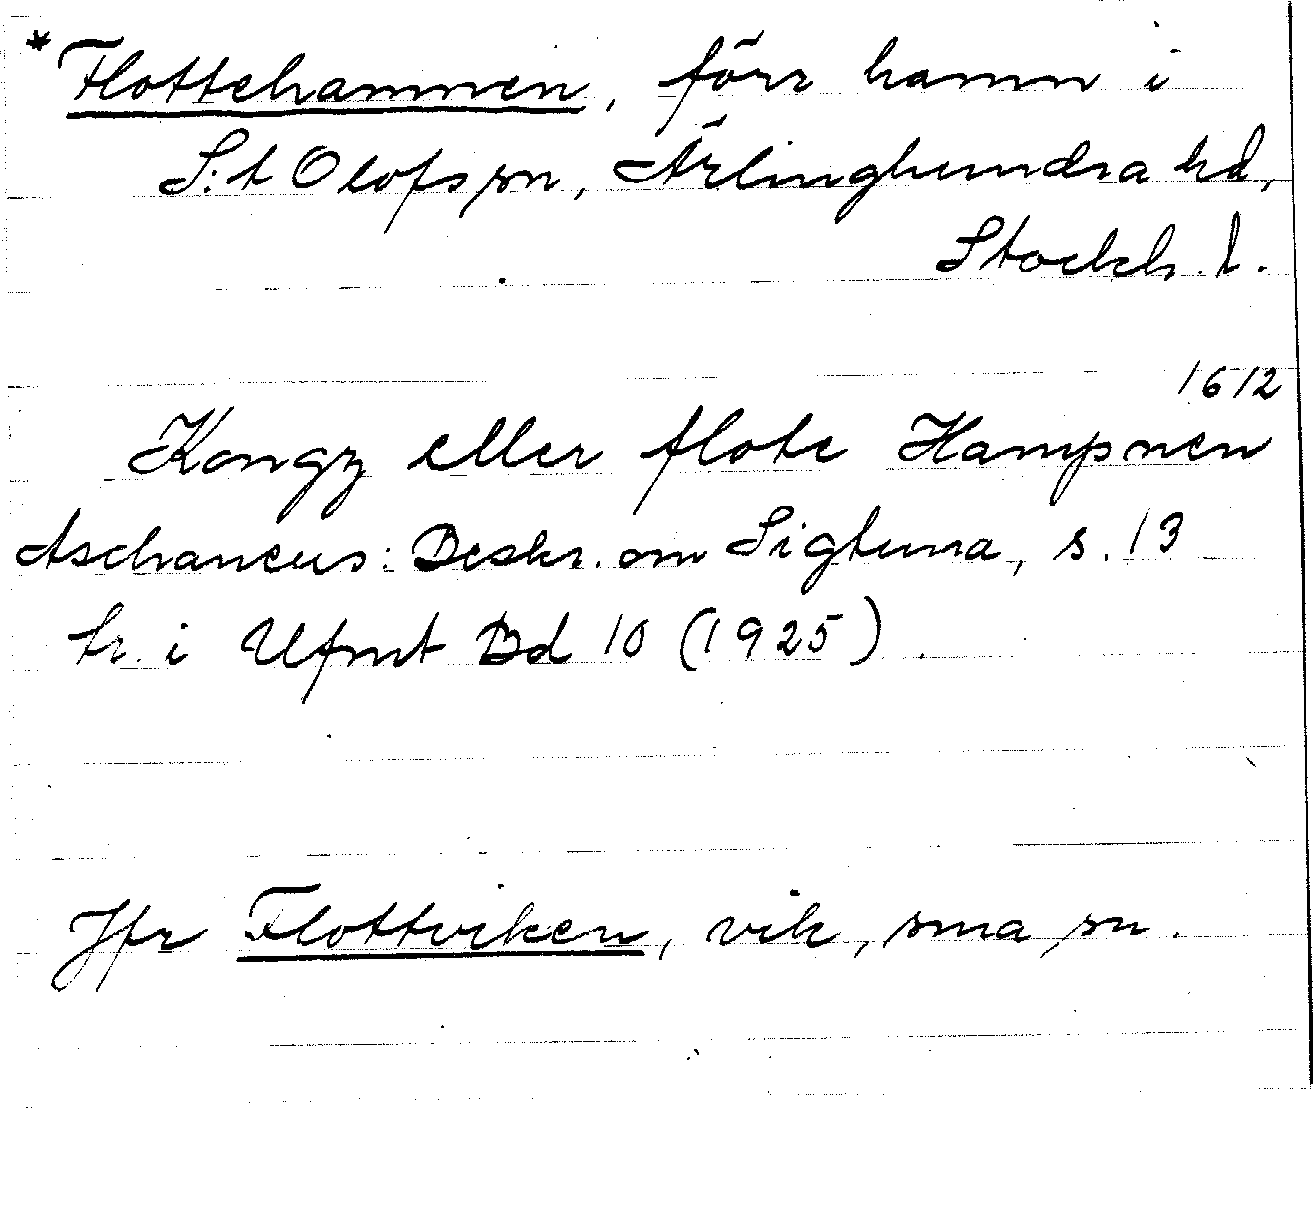 * Flottehamnen, förr hamn i
S:t Olofs sn, Ärlinghundra hd,
Stockh. l.
1612
Kongz eller flote Hampnen
Aschaneus: Beskr. om Sigtuna, s. 13
tr. i Ufmt Bd 10 (1925)
Jfr Flottviken, vik, sma sn.